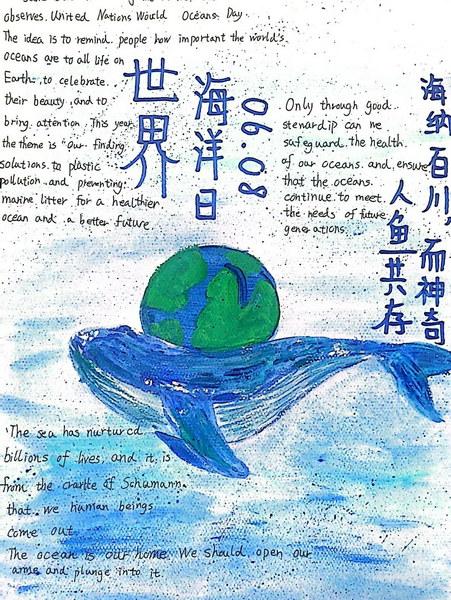 observes. United Nations Would Oceans Day.
The idea is to remind people how important the world's
oceans are to all life on
Earth. to celebrate.
their beauty. and to
bring attention. This year
the theme is "Our finding
solutions to plastic
pollution and prevnting
marine litter for a healthier
ocean and a better future.
世界
海洋日
06.08
Only through good
stenardip can we
safeguard the health.
of our oceans. and ensure
that the oceans.
continue to meet.
the needs of future
generations.
海纳百川,而神奇
人鱼共存
The sea has nurtured
billions of lives, and it is
from the of Schumann.
that we human beings
come out
The ocean is our home. We should open our
arms and plunge into it.